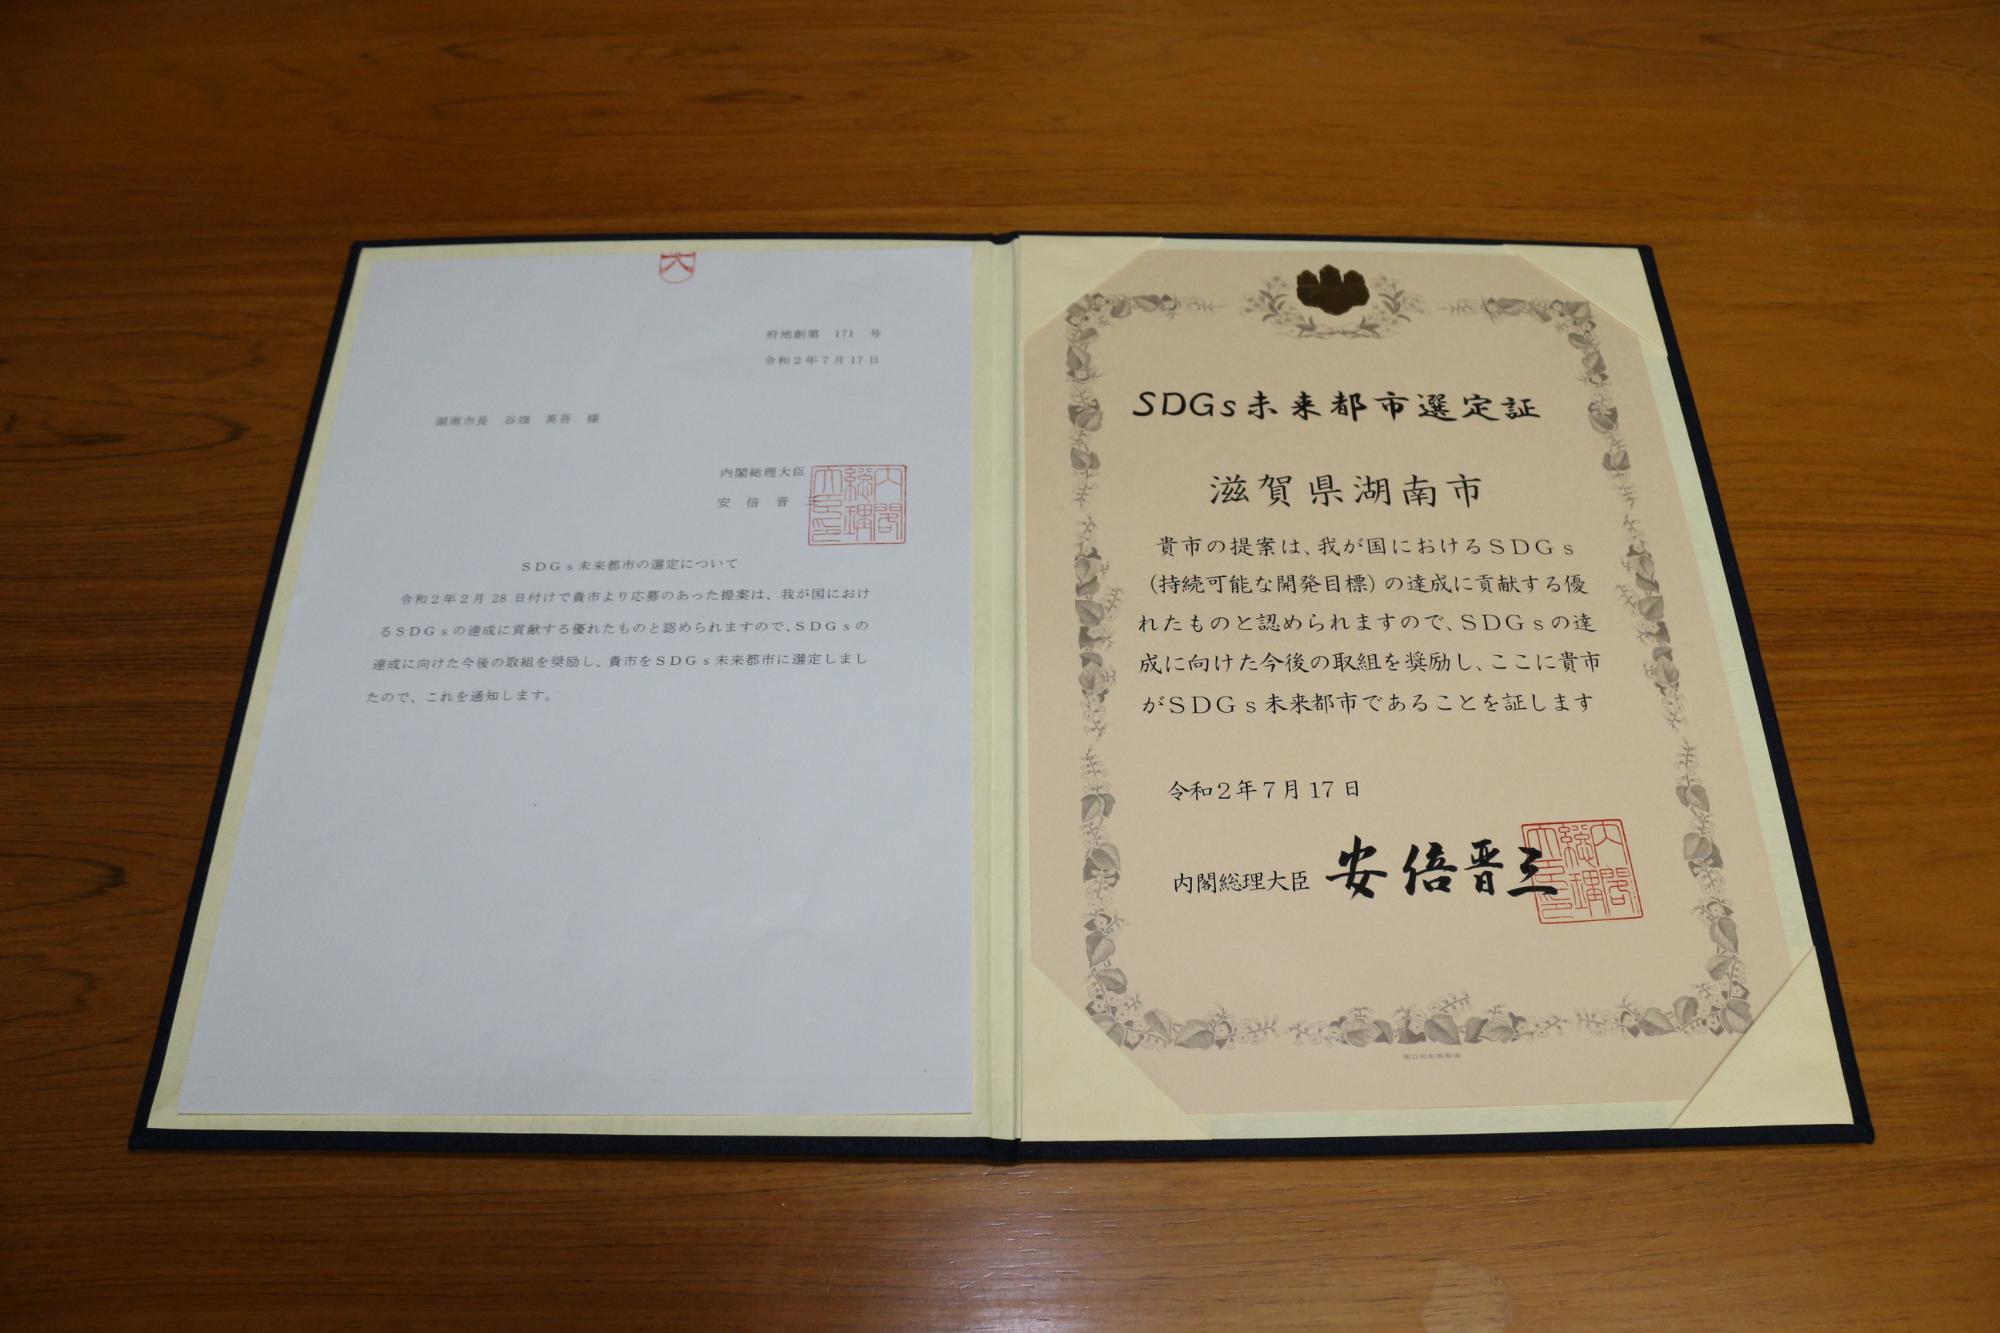 府地創第 171 号
令和2年7月17日
湖南市長 谷畑 英吾 様
内閣総理大臣
安倍晋三
内閣総理大臣印
SDGs未来都市の選定について
令和2年2月28日付けで貴市より応募のあった提案は、我が国におけ
るSDGsの達成に貢献する優れたものと認められますので、SDGsの
達成に向けた今後の取組を奨励し、貴市をSDGs未来都市に選定しまし
たので、これを通知します。
SDGs未来都市選定証
滋賀県湖南市
貴市の提案は、我が国におけるSDGs
(持続可能な開発目標)の達成に貢献する優
れたものと認められますので、SDGsの達
成に向けた今後の取組を奨励し、ここに貴市
がSDGs未来都市であることを証します
令和2年7月17日
内閣総理大臣 安倍晋三
内閣総理大臣印